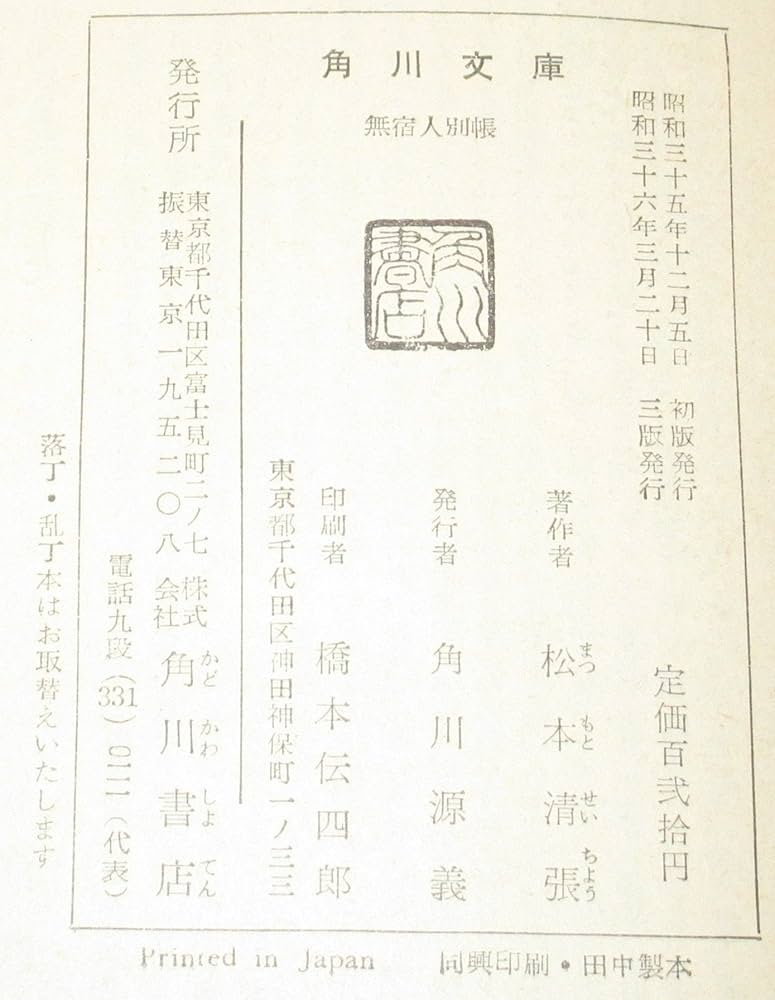 角川文庫
無宿人別帳
昭和三十五年十二月五日　初版発行
昭和三十六年三月二十日　三版発行
定価百弐拾円
角川書店
著作者　松本清張
まつもとせいちよう
発行者　角川源義
印刷者　橋本伝四郎
東京都千代田区神田神保町一ノ三三
発行所
東京都千代田区富士見町二ノ七
振替東京一九五二〇八
株式会社　角川書店
かどかわしよてん
電話九段(331)〇一一一(代表)
落丁・乱丁本はお取替えいたします
Printed in Japan　同興印刷・田中製本